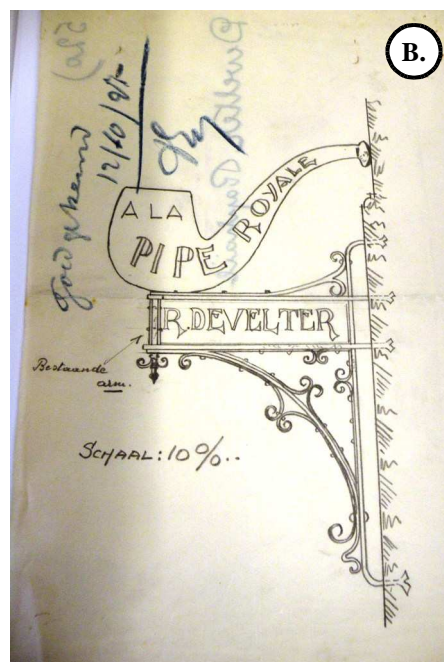 B.
Goedgekeurd
12/10/87
A LA
PIPE ROYALE
R. DEVELTER
Bestaande
arm.
SCHAAL: 10%..